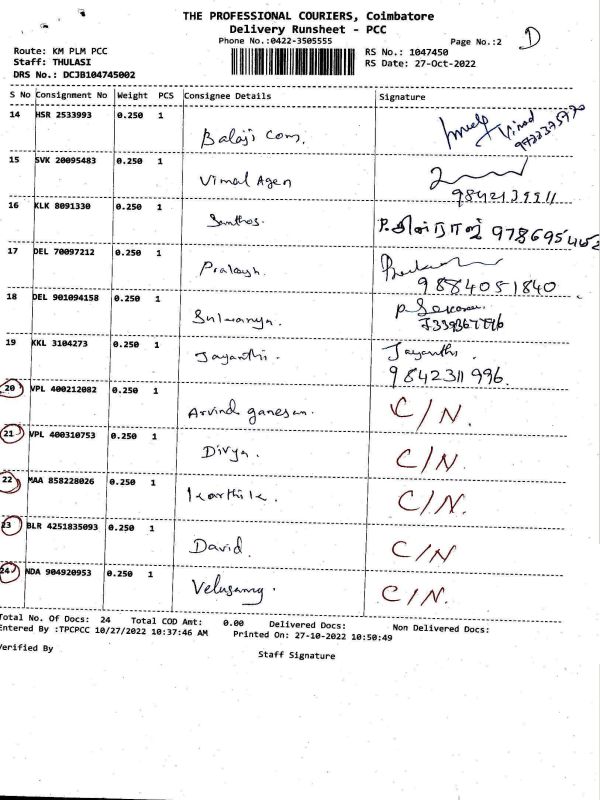 THE PROFESSIONAL COURIERS, Coimbatore
Delivery Runsheet - PCC
Phone No.:0422-3505555
Page No.:2 D
Route: KM PLM PCC
RS No.: 1047450
Staff: THULASI
RS Date: 27-Oct-2022
DRS No.: DCJB104745002
S No Consignment No Weight PCS Consignee Details Signature
14 HSR 2533993 0.250 1 Balaji com.
15 SVK 20095483 0.250 1 Vimal Agen 9842139911
16 KLK 8091330 0.250 1 Santhos.
17 DEL 70097212 0.250 1 Prakash. 9884051840
18 DEL 901094158 0.250 1
19 KKL 3104273 0.250 1 Jayanthi. Jayanthi.
9842311996.
20 VPL 400212082 0.250 1 Arvind ganesan. C/N.
21 VPL 400310753 0.250 1 Divya. C/N.
22 MAA 858228026 0.250 1 Karthik. C/N.
23 BLR 4251835093 0.250 1 David. C/N
24 NDA 904920953 0.250 1 Velusamy. C/N.
Total No. Of Docs: 24 Total COD Amt: 0.00 Delivered Docs: Non Delivered Docs:
Entered By :TPCPCC 10/27/2022 10:37:46 AM Printed On: 27-10-2022 10:50:49
Verified By
Staff Signature